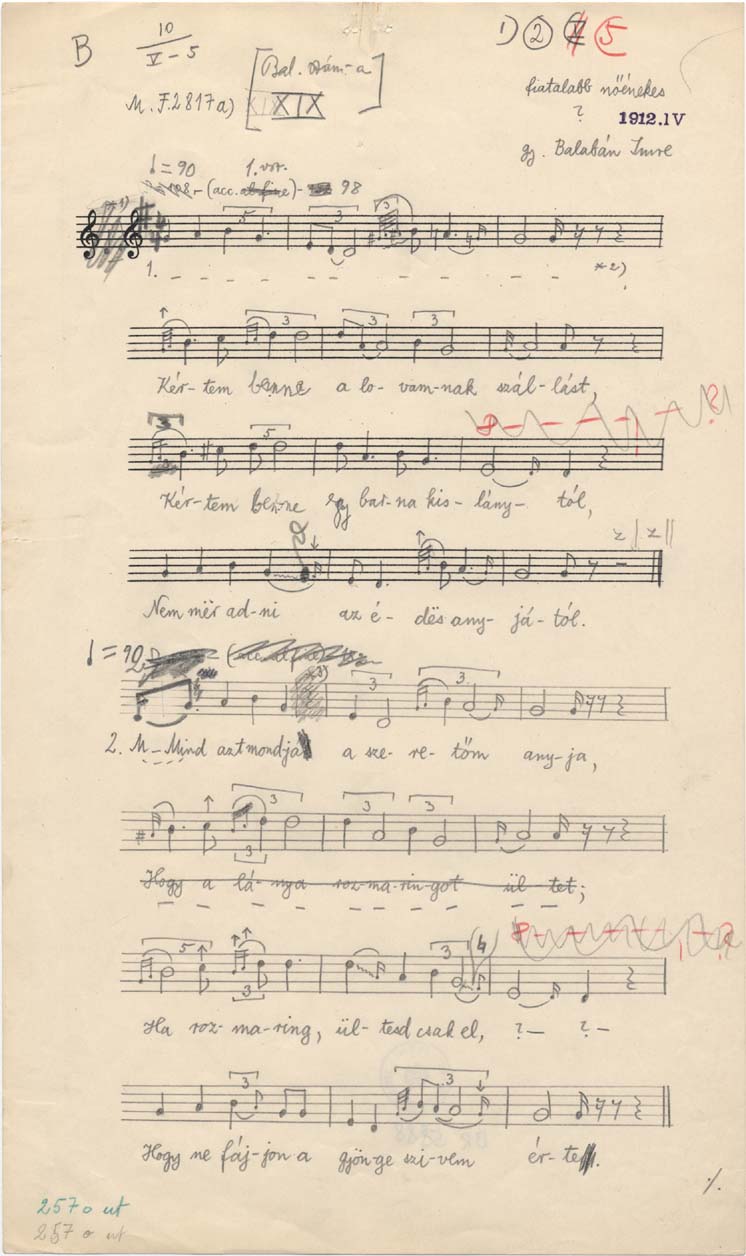 B 10/V-5 1) 2 5
[Bal. szám-a
M.F.2817a) XIX]
fiatalabb nőénekes
?
1912.IV
gy. Balabán Imre
♩=90 1. vsz.
(acc. al fine) - 98
1. *2)
Kér-tem benne a lo-vam-nak szál-lást,
Kér-tem ben-ne egy bar-na kis-lány-tól,
Nem mër ad-ni az é-dës any-já-tól.
♩=90
2. M-Mind azt mondja a sze-re-tőm any-ja,
Hogy a lá-nya roz-ma-rin-got ül-tet;
Ha roz-ma-ring, ül-tesd csak el, ?- ?-
Hogy ne fáj-jon a gyön-ge szi-vem ér-te.
257 o ut
257 o ut
·/.